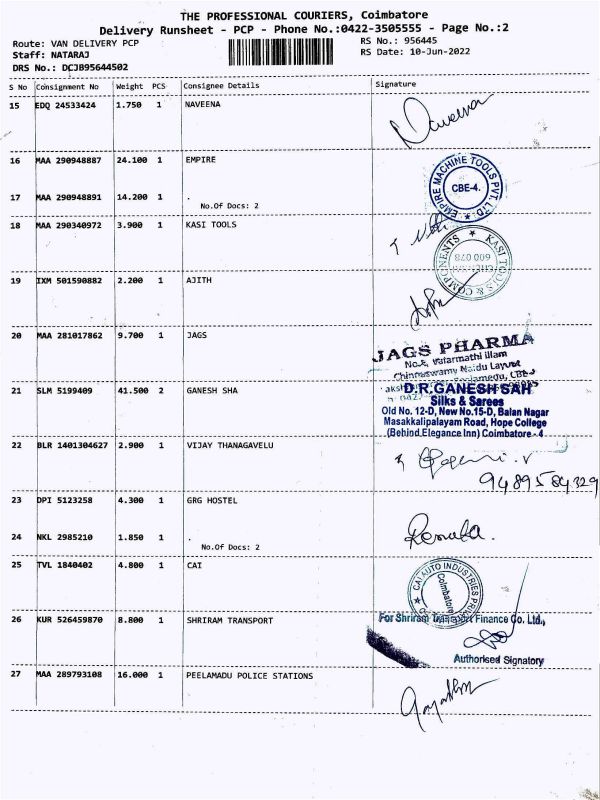 THE PROFESSIONAL COURIERS, Coimbatore
Delivery Runsheet - PCP - Phone No.:0422-3505555 - Page No.:2
Route: VAN DELIVERY PCP
RS No.: 956445
Staff: NATARAJ
RS Date: 10-Jun-2022
DRS No.: DCJB95644502
S No Consignment No Weight PCS Consignee Details Signature
15 EDQ 24533424 1.750 1 NAVEENA
Naveena
16 MAA 290948887 24.100 1 EMPIRE
EMPIRE MACHINE TOOLS PVT. LTD.
CBE-4.
17 MAA 290948891 14.200 1 .
No.Of Docs: 2
18 MAA 290340972 3.900 1 KASI TOOLS
KASI TOOLS & COMPONENTS
600 078
19 IXM 501590882 2.200 1 AJITH
20 MAA 281017862 9.700 1 JAGS
JAGS PHARMA
No.5, Valarmathi illam
Chinnaswamy Naidu Layout
21 SLM 5199409 41.500 2 GANESH SHA
D.R.GANESH SAH
Silks & Sarees
Old No. 12-D, New No.15-D, Balan Nagar
Masakkalipalayam Road, Hope College
(Behind Elegance Inn) Coimbatore - 4
22 BLR 1401304627 2.900 1 VIJAY THANAGAVELU
9489584329
23 DPI 5123258 4.300 1 GRG HOSTEL
24 NKL 2985210 1.850 1 .
No.Of Docs: 2
25 TVL 1840402 4.800 1 CAI
CAI AUTO INDUSTRIES
Coimbatore
26 KUR 526459870 8.800 1 SHRIRAM TRANSPORT
For Shriram Transport Finance Co. Ltd.,
Authorised Signatory
27 MAA 289793108 16.000 1 PEELAMADU POLICE STATIONS